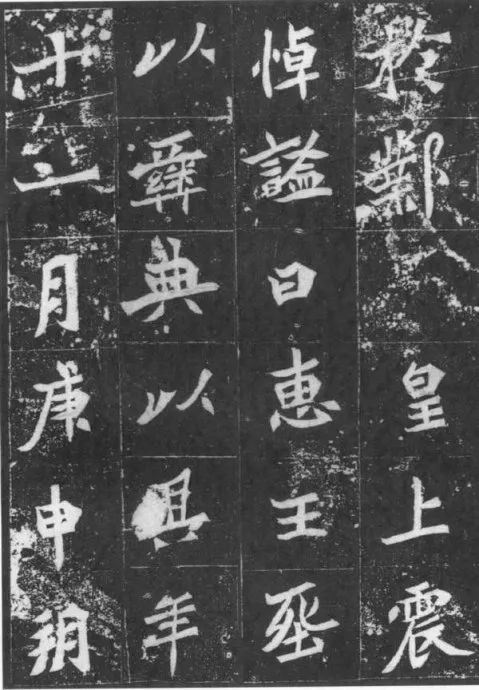 於鄴 皇上震
悼謚曰恵王塟
以彝典以其年
十二月庚申朔